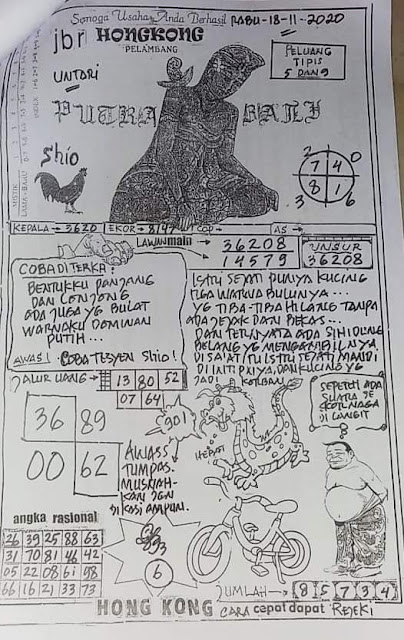 Semoga Usaha Anda Berhasil
RABU-18-11-2020
jbr HONGKONG
PELAMBANG
PELUANG
TIPIS
5 DAN 9
UNTORI
PUTRA BALI
Shio
2 0
7 4
8 1
3 6
KEPALA → 3620 EKOR → 8147 COP → AS →
LAWAN main
36208
14579
UNSUR
36208
COBA DITERKA:
BENTUKKU PANJANG
DAN LONJONG
ADA JUGA YG BULAT
WARNAKU DOMINAN
PUTIH...
AWAS! COBA TESYEN SHIO!
ISTRI SEJATI PUNYA KUCING
TIGA WARNA BULUNYA...
YG TIBA-TIBA HILANG TANPA
ADA JEJAK DAN BEKAS...
DAN TERNYATA ADA SIHIDUNG
BELANG YG MENGAMBILNYA
DISAAT ITU ISTRI SEJATI MANDI
DAN KUCING YG
JADI KORBAN
JALUR UANG
13 80 52
07 64
36 89
00 62
GO!
AWASS
TUMPAS.
MUSNAH-
KAN JGN
DI KASI AMPUN.
HEBAT
SEPERTI ADA
SUARA SE
EKOR NAGA
DI LANGIT
angka rasional
26 39 25 88 63
31 70 81 46 42
05 22 08 61 98
66 16 21 33 73
6
JUMLAH → 8 5 7 3 4
HONG KONG CARA cepat dapat REJEKI